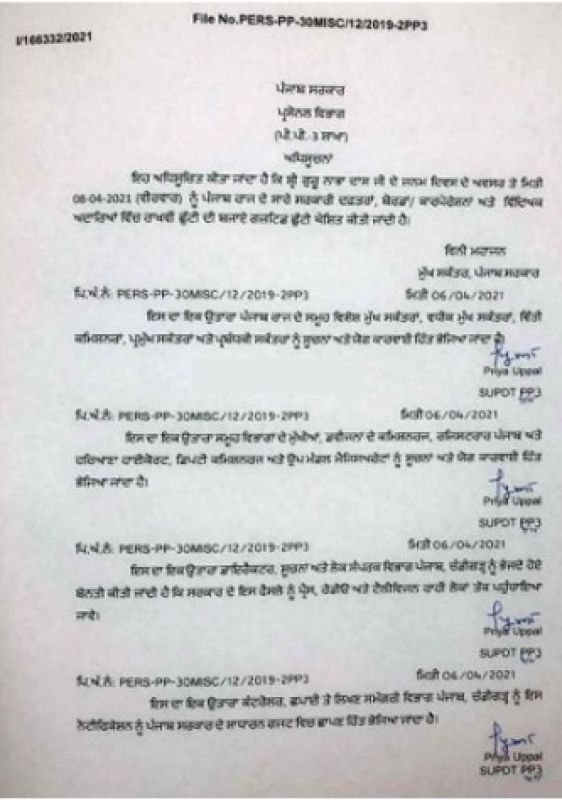 File No.PERS-PP-30MISC/12/2019-2PP3
I/166332/2021
ਪੰਜਾਬ ਸਰਕਾਰ
ਪ੍ਰਸੋਨਲ ਵਿਭਾਗ
(ਪੀ.ਪੀ.-3 ਸ਼ਾਖਾ)
ਅਧਿਸੂਚਨਾਂ
ਇਹ ਅਧਿਸੂਚਿਤ ਕੀਤਾ ਜਾਂਦਾ ਹੈ ਕਿ ਸ੍ਰੀ ਗੁਰੂ ਨਾਭਾ ਦਾਸ ਜੀ ਦੇ ਜਨਮ ਦਿਵਸ ਦੇ ਅਵਸਰ ਤੇ ਮਿਤੀ
08-04-2021 (ਵੀਰਵਾਰ) ਨੂੰ ਪੰਜਾਬ ਰਾਜ ਦੇ ਸਾਰੇ ਸਰਕਾਰੀ ਦਫਤਰਾਂ, ਬੋਰਡਾਂ/ ਕਾਰਪੋਰੇਸ਼ਨਾਂ ਅਤੇ ਵਿੱਦਿਅਕ
ਅਦਾਰਿਆਂ ਵਿੱਚ ਰਾਖਵੀਂ ਛੁੱਟੀ ਦੀ ਬਜਾਏ ਗਜ਼ਟਿਡ ਛੁੱਟੀ ਘੋਸ਼ਿਤ ਕੀਤੀ ਜਾਂਦੀ ਹੈ।
ਵਿਨੀ ਮਹਾਜਨ
ਮੁੱਖ ਸਕੱਤਰ, ਪੰਜਾਬ ਸਰਕਾਰ
ਪਿ.ਅੰ.ਨੰ: PERS-PP-30MISC/12/2019-2PP3 ਮਿਤੀ 06/04/2021
ਇਸ ਦਾ ਇਕ ਉਤਾਰਾ ਪੰਜਾਬ ਰਾਜ ਦੇ ਸਮੂਹ ਵਿਸ਼ੇਸ਼ ਮੁੱਖ ਸਕੱਤਰਾਂ, ਵਧੀਕ ਮੁੱਖ ਸਕੱਤਰਾਂ, ਵਿੱਤੀ
ਕਮਿਸ਼ਨਰਾਂ, ਪ੍ਰਮੁੱਖ ਸਕੱਤਰਾਂ ਅਤੇ ਪ੍ਰਬੰਧਕੀ ਸਕੱਤਰਾਂ ਨੂੰ ਸੂਚਨਾ ਅਤੇ ਯੋਗ ਕਾਰਵਾਈ ਹਿੱਤ ਭੇਜਿਆ ਜਾਂਦਾ ਹੈ।
Priya Uppal
SUPDT PP3
ਪਿ.ਅੰ.ਨੰ: PERS-PP-30MISC/12/2019-2PP3 ਮਿਤੀ 06/04/2021
ਇਸ ਦਾ ਇਕ ਉਤਾਰਾ ਸਮੂਹ ਵਿਭਾਗਾਂ ਦੇ ਮੁੱਖੀਆਂ, ਡਵੀਜਨਾਂ ਦੇ ਕਮਿਸ਼ਨਰਜ਼, ਰਜਿਸਟਰਾਰ ਪੰਜਾਬ ਅਤੇ
ਹਰਿਆਣਾ ਹਾਈਕੋਰਟ, ਡਿਪਟੀ ਕਮਿਸ਼ਨਰਜ਼ ਅਤੇ ਉਪ ਮੰਡਲ ਮੈਜਿਸਟਰੇਟਾਂ ਨੂੰ ਸੂਚਨਾ ਅਤੇ ਯੋਗ ਕਾਰਵਾਈ ਹਿੱਤ
ਭੇਜਿਆ ਜਾਂਦਾ ਹੈ।
Priya Uppal
SUPDT PP3
ਪਿ.ਅੰ.ਨੰ: PERS-PP-30MISC/12/2019-2PP3 ਮਿਤੀ 06/04/2021
ਇਸ ਦਾ ਇਕ ਉਤਾਰਾ ਡਾਇਰੈਕਟਰ, ਸੂਚਨਾ ਅਤੇ ਲੋਕ ਸੰਪਰਕ ਵਿਭਾਗ ਪੰਜਾਬ, ਚੰਡੀਗੜ੍ਹ ਨੂੰ ਭੇਜਦੇ ਹੋਏ
ਬੇਨਤੀ ਕੀਤੀ ਜਾਂਦੀ ਹੈ ਕਿ ਸਰਕਾਰ ਦੇ ਇਸ ਫੈਸਲੇ ਨੂੰ ਪ੍ਰੈਸ, ਰੇਡੀਓ ਅਤੇ ਟੈਲੀਵਿਜਨ ਰਾਹੀਂ ਲੋਕਾਂ ਤੱਕ ਪਹੁੰਚਾਇਆ
ਜਾਵੇ।
Priya Uppal
SUPDT PP3
ਪਿ.ਅੰ.ਨੰ: PERS-PP-30MISC/12/2019-2PP3 ਮਿਤੀ 06/04/2021
ਇਸ ਦਾ ਇਕ ਉਤਾਰਾ ਕੰਟਰੋਲਰ, ਛਪਾਈ ਤੇ ਲਿਖਣ ਸਮੱਗਰੀ ਵਿਭਾਗ ਪੰਜਾਬ, ਚੰਡੀਗੜ੍ਹ ਨੂੰ ਇਸ
ਨੋਟੀਫਿਕੇਸ਼ਨ ਨੂੰ ਪੰਜਾਬ ਸਰਕਾਰ ਦੇ ਸਾਧਾਰਨ ਗਜਟ ਵਿਚ ਛਾਪਣ ਹਿੱਤ ਭੇਜਿਆ ਜਾਂਦਾ ਹੈ।
Priya Uppal
SUPDT PP3